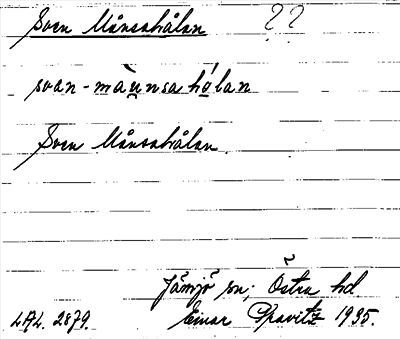 Sven Månsahålan ??
svan-màunsa hålan
Sven Månsahålan
Jämjö sn; Östra hd
LAL. 2879. Einar Gravitz 1935.